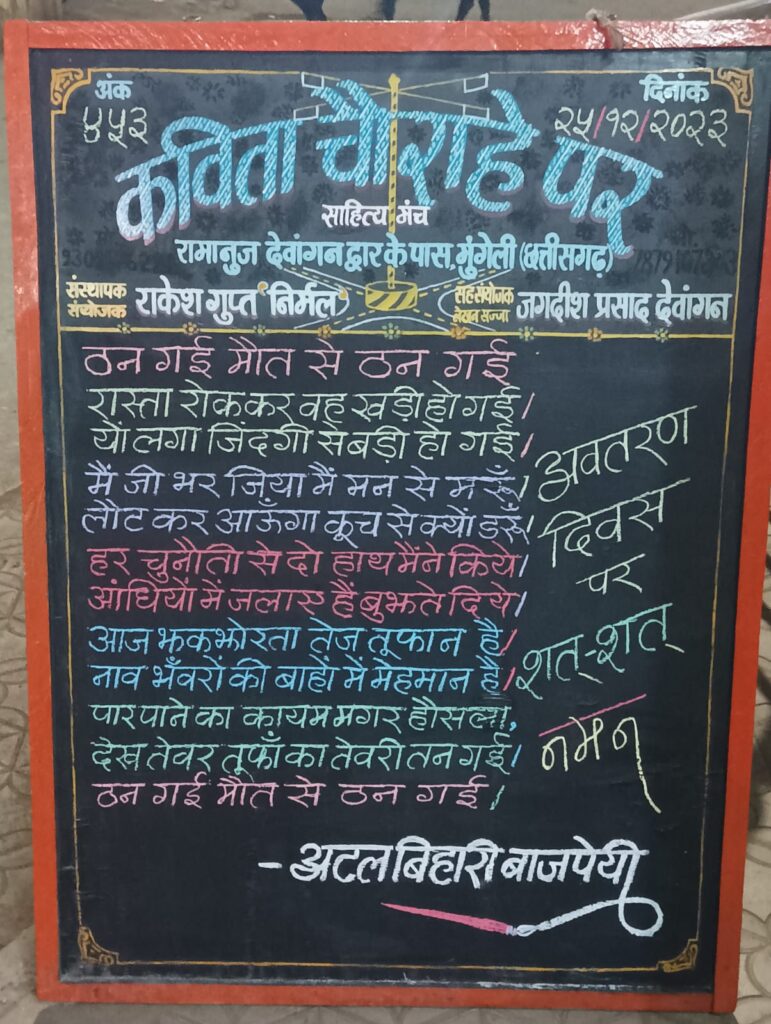 अंक
४५३
दिनांक
२५/१२/२०२३
कविता चौराहे पर
साहित्य मंच
रामानुज देवांगन द्वार के पास, मुंगेली (छत्तीसगढ़)
संस्थापक
संयोजक
राकेश गुप्त 'निर्मल'
सह संयोजक
लेखन सज्जा
जगदीश प्रसाद देवांगन
ठन गई मौत से ठन गई
रास्ता रोककर वह खड़ी हो गई।
यों लगा जिंदगी से बड़ी हो गई।
मैं जी भर जिया मैं मन से मरूँ।
लौट कर आऊँगा कूच से क्यों डरूँ।
हर चुनौती से दो हाथ मैंने किये।
आंधियों में जलाए हैं बुझते दिये।
आज झकझोरता तेज तूफान है।
नाव भँवरों की बाहों में मेहमान है।
पार पाने का कायम मगर हौसला,
देख तेवर तूफाँ का तेवरी तन गई।
ठन गई मौत से ठन गई।
अवतरण
दिवस
पर
शत्-शत्
नमन
- अटल बिहारी बाजपेयी